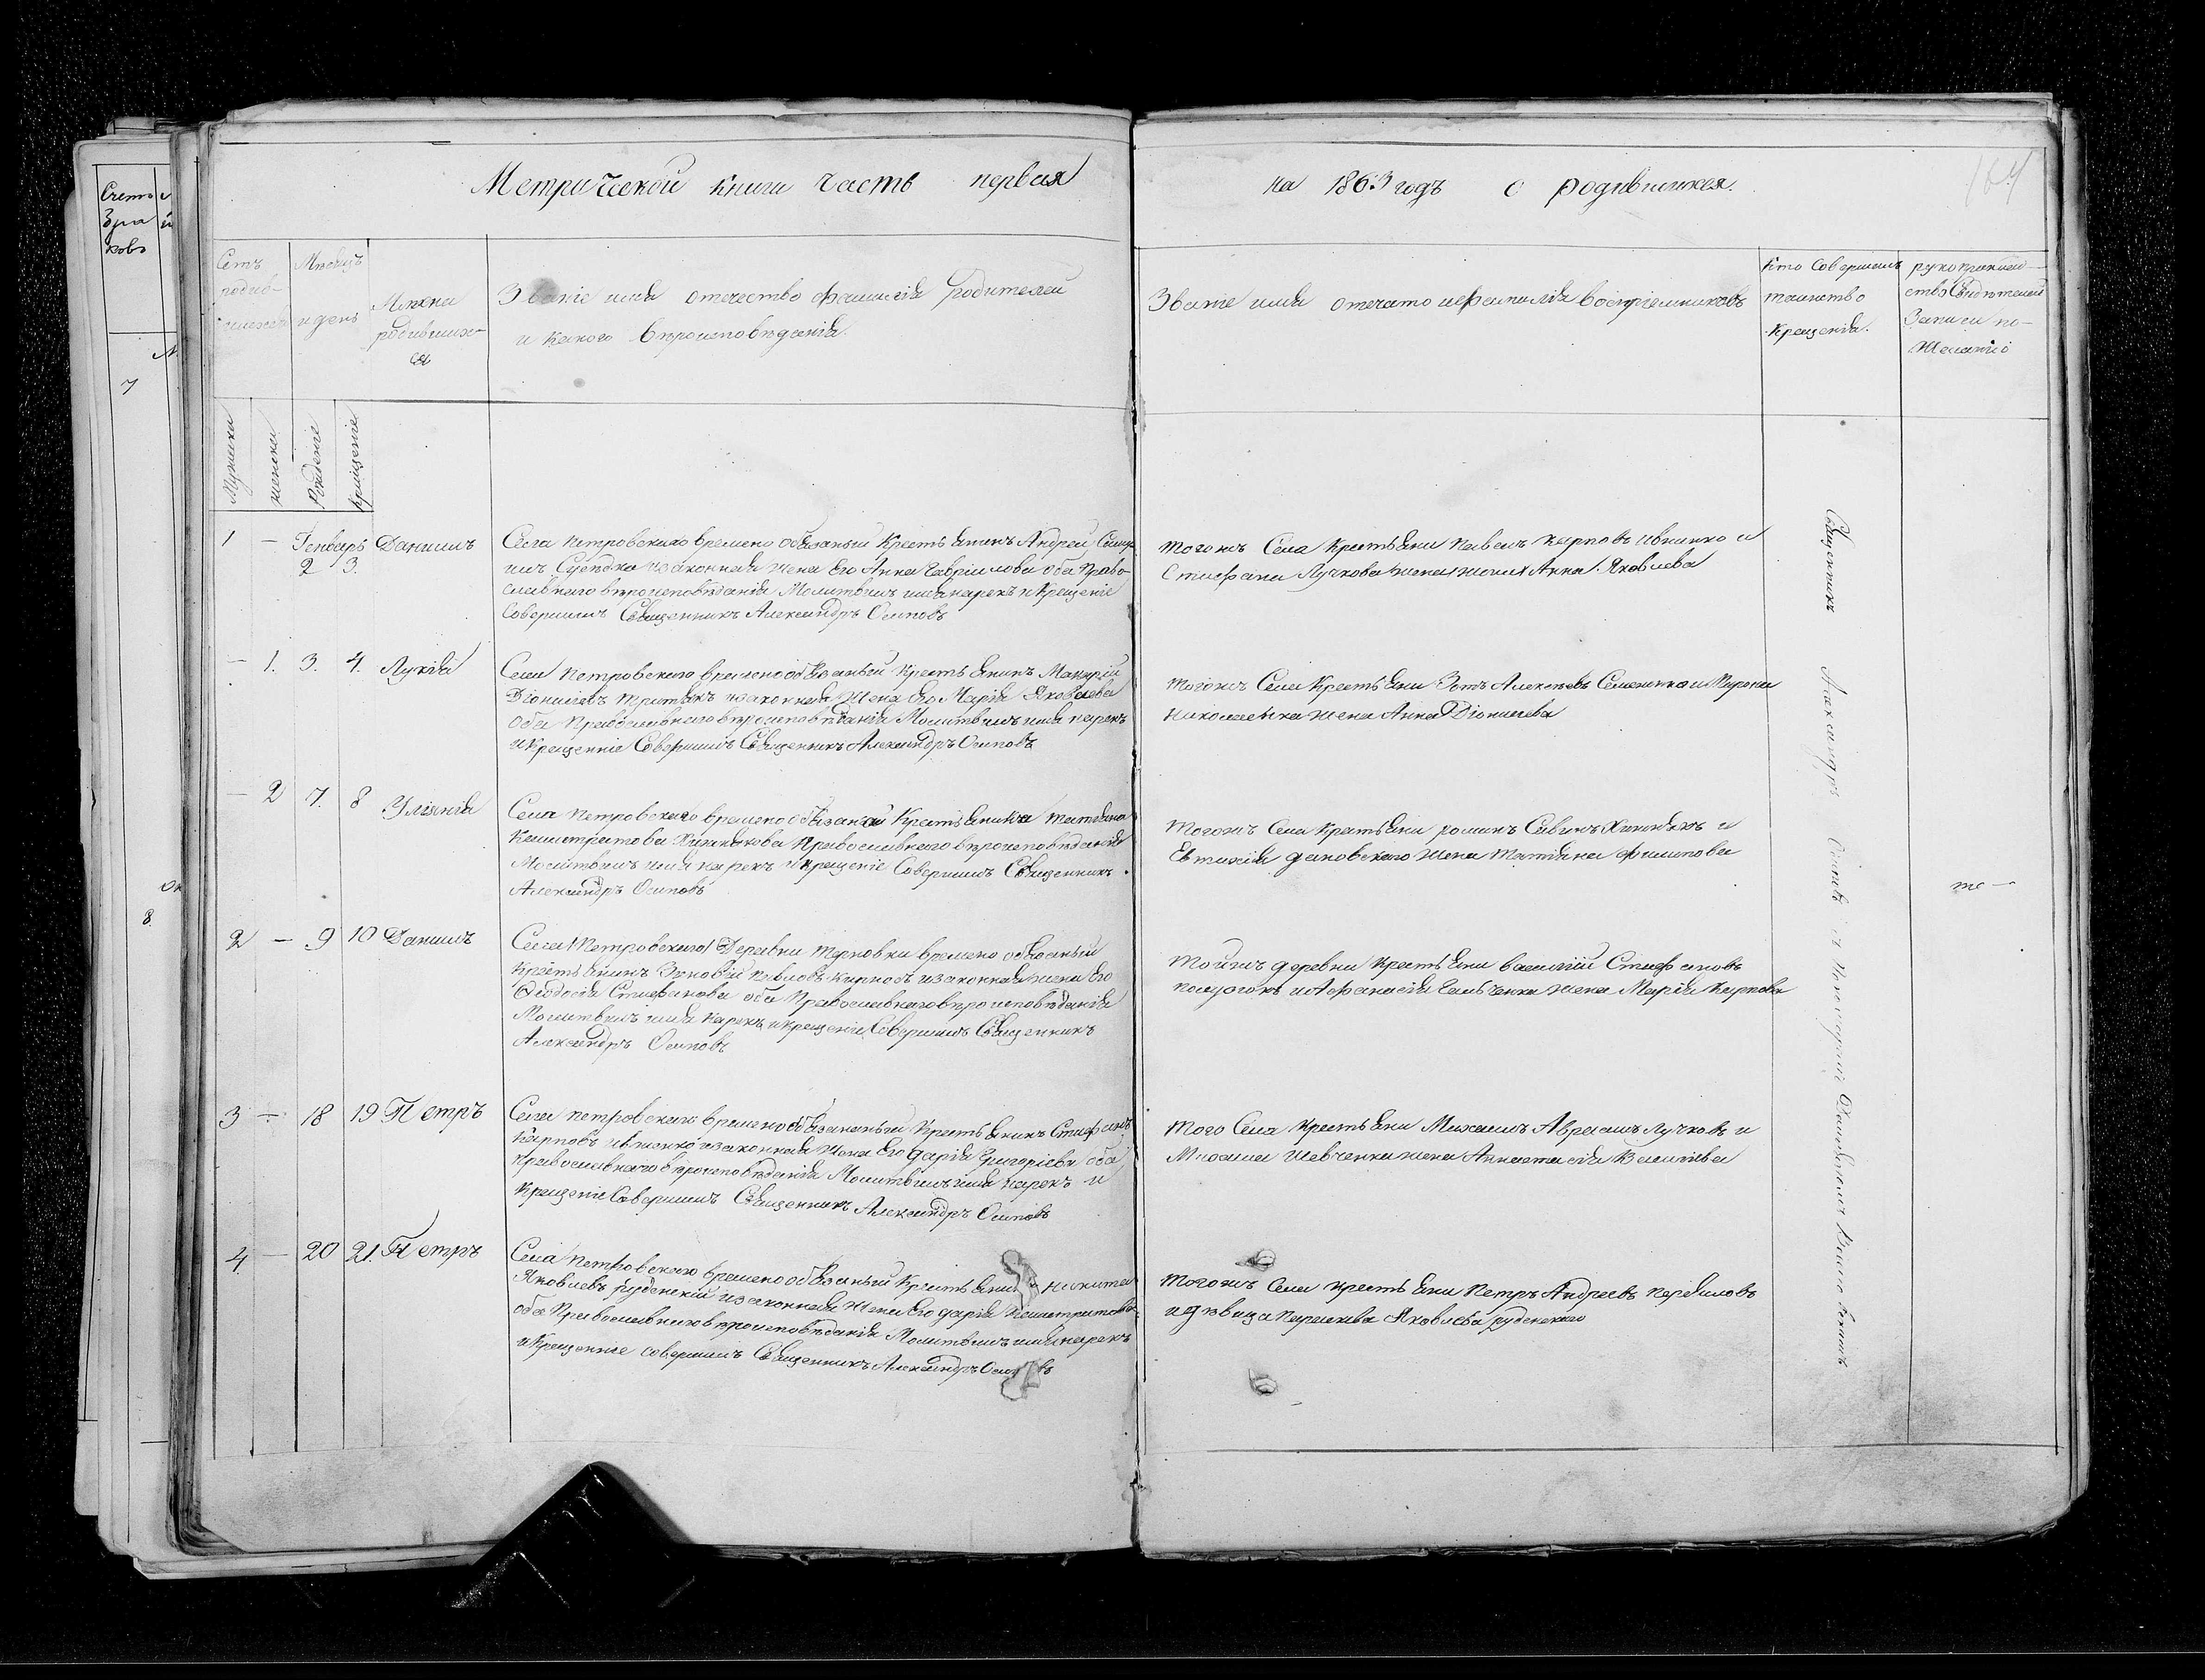 Счетъ
бра
ковъ
7
8
Метрической книги часть первая
на 1863 годъ о родившихся.
164
Мѣсяцъ
и день
Имена
родивших-
ся
Званіе имя отечество фамилія Родителей
и какого вѣроисповѣданія.
Званіе имя отечство и фамилія воспріемниковъ
Кто Совершалъ
таинство
Крещенія.
рукоприклад-
ство Свидѣтелей
Записи по-
желанію
Мужески
женски
Рожденіе
Крещеніе
1 — Генварь Даніилъ
2 3.
Села Петровскаго времено обязаный Крестьянинъ Андрей
законная жена Его Анна Гавріилова оба Право-
славнаго вѣроисповѣданія Молитвилъ имя нарекъ и Крещеніе
Совершилъ Священникъ Александръ Осиповъ
тогожъ Села Крестьяни Павелъ Карповъ Ивненко и
Стефана Лучкова жена Анна Яковлева
— 1. 3. 4. Лукія
Села Петровскаго времено обязаный Крестьянинъ
Діонисіевъ законная Жена Его Марія Яковлева
Оба Православнаго вѣроисповѣданія Молитвилъ имя нарекъ
и Крещенніе Совершилъ Священникъ Александръ Осиповъ
тогожъ Села Крестьяни Зотъ Алексѣевъ Семененко и Мирона
Николаенка жена Анна Діонисіева
— 2 7. 8 Уліянія
Села Петровскаго времено обязаная Крестьянка Татіяна
Калистратова Хижнякова Православнаго вѣроисповѣданія
Молитвилъ имя нарекъ и Крещеніе Совершилъ Священникъ
Александръ Осиповъ
тогожъ Села Крестьяни романъ Савинъ Хижнякъ и
Евтихія дановскаго жена Татіяна Филипова
2 — 9 10 Даніилъ
Села Петровскаго Деревни Терновки времено обязаный
Крестьянинъ Зиновій Павловъ Кирносъ законная жена Его
Феодосія Стефанова оба Православнаго вѣроисповѣданія
Молитвилъ имя нарекъ и крещеніе Совершилъ Священникъ
Александръ Осиповъ
тойжъ деревни Крестьяни василій Стефановъ
и Афанасія жена Марія Карпова
3 — 18 19 Петръ
Села Петровскаго времено обязаный Крестьянинъ Стефанъ
Карповъ Ивненко законная жена Его Дарія Григоріева оба
Православнаго вѣроисповѣданія Молитвилъ имя нарекъ и
Крещеніе Совершилъ Священникъ Александръ Осиповъ
Того Села Крестьяни Михаилъ Авраамъ Лучковъ и
Михаила Шевченка жена Анастасія Василіева
4 — 20 21. Петръ
Села Петровскаго времено обязаный Крестьянинъ Никита
Яковлевъ руденскій законная жена Его дарія Калистратова
оба Православнаго вѣроисповѣданія Молитвилъ имя нарекъ
и Крещенніе совершилъ Священникъ Александръ Осиповъ
тогожъ Села Крестьяни Петръ Андреевъ
и дѣвица Параскева Яковлева руденскаго
Священникъ Александръ Осиповъ